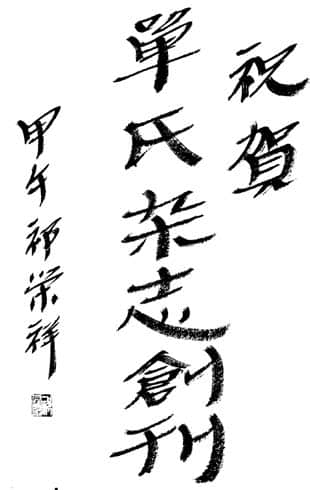 祝賀
單氏杂志創刊
甲午祁荣祥